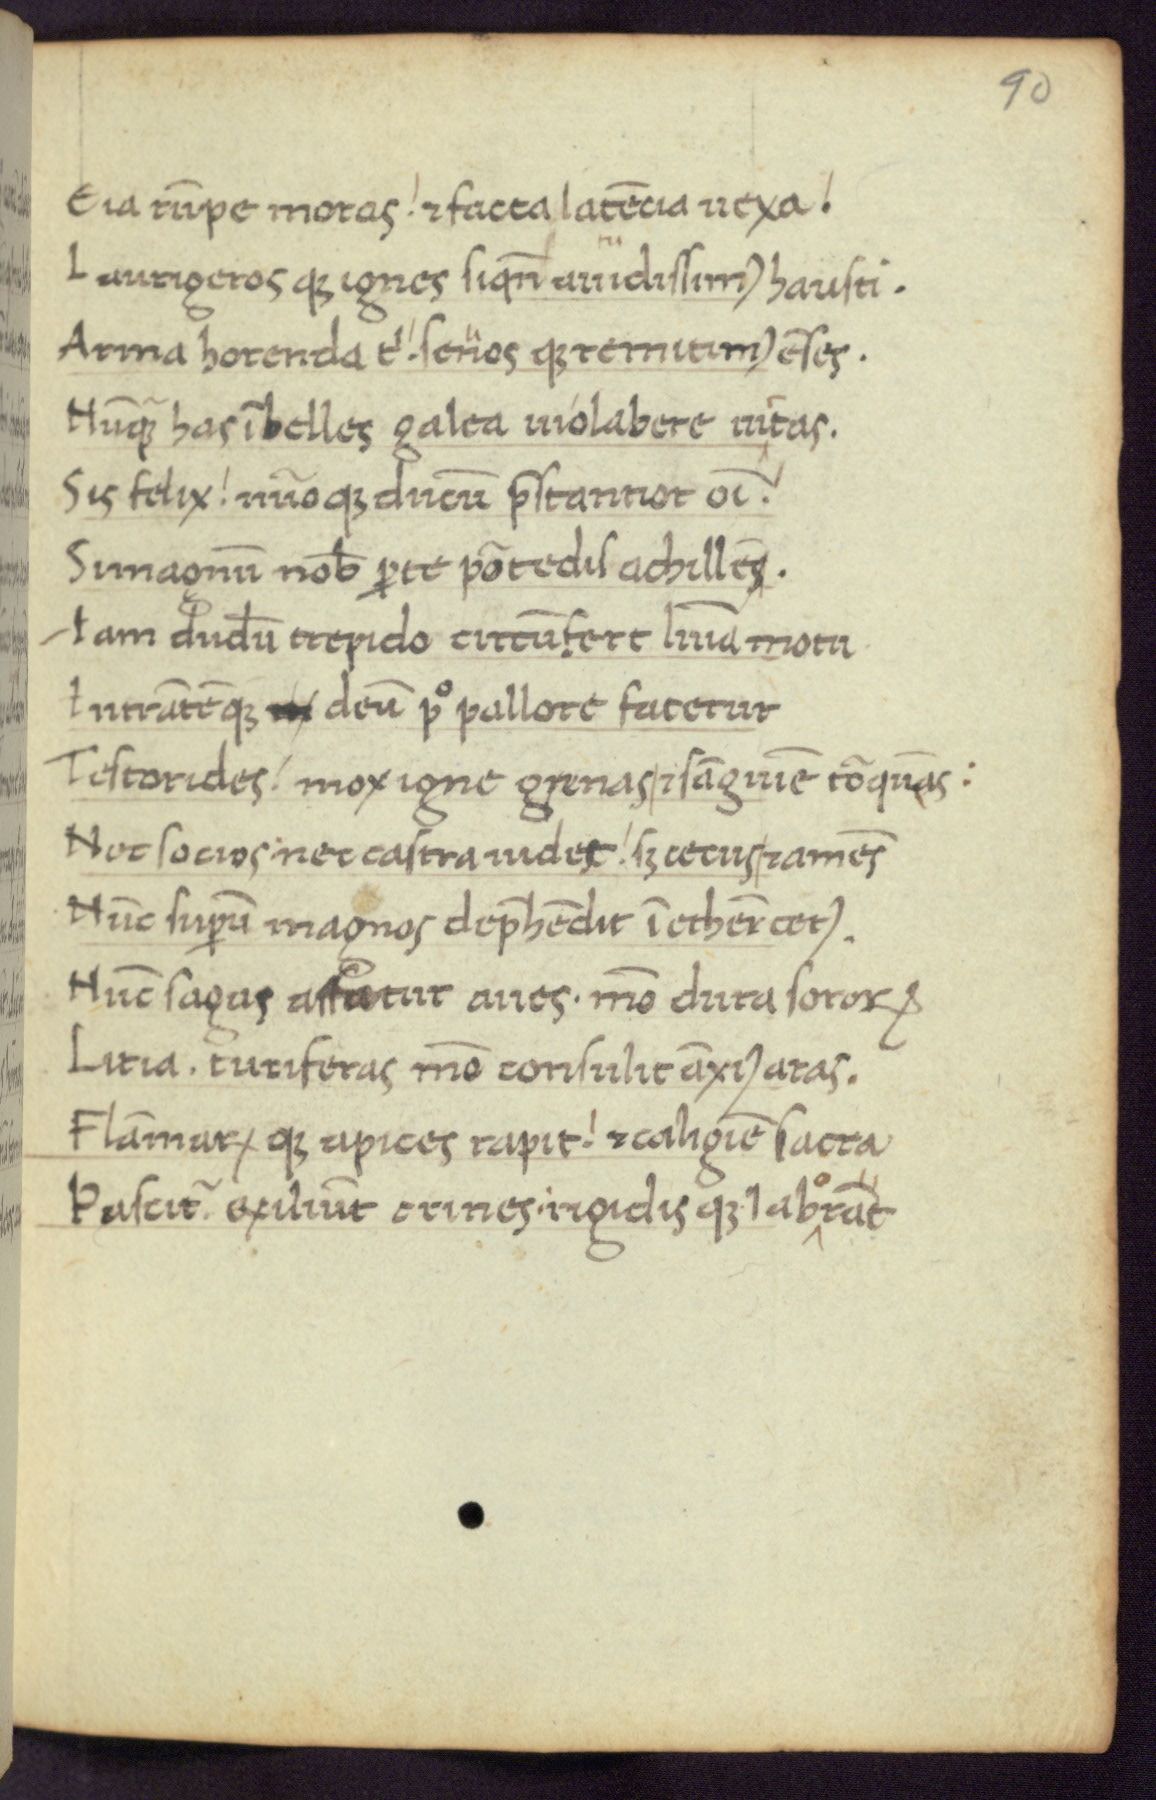 90
Eia rūpe moras! ⁊ facta latēcia uexa!
Laurigeros qꝫ ignes siqn̄ auidissimꝰ hausti.
Arma horenda tⁱ! seuos qꝫ remitimꝰ ēses.
Nūqꝫ has ībelles galea uiolabere uitas.
Sis felix! nūoqꝫ ducū p̄stantior oī!
Si magnū nob̄ ꝑte pōtedis achillēꝫ.
Iam dudū trepido circūfert lūīa motu
Intrātēqꝫ deū pº pallore fatetur
Testorides! mox igne genas ⁊ sāguīe tōquēs:
Nec socios nec castra uidet! sꝫ cecus ⁊ amēs
Nūc suꝑū magnos dep̄hēdit ī ethēr̄ cetꝰ.
Nūc sagas affatur aues. mō dura sororꝝ
Licia. turiferas mō consulit āxiꝰ aras.
Flāmarꝝ qꝫ apices rapit! ⁊ caligīe sacra
Pascit᷑. exiliūt crines rigidis qꝫ laborāt